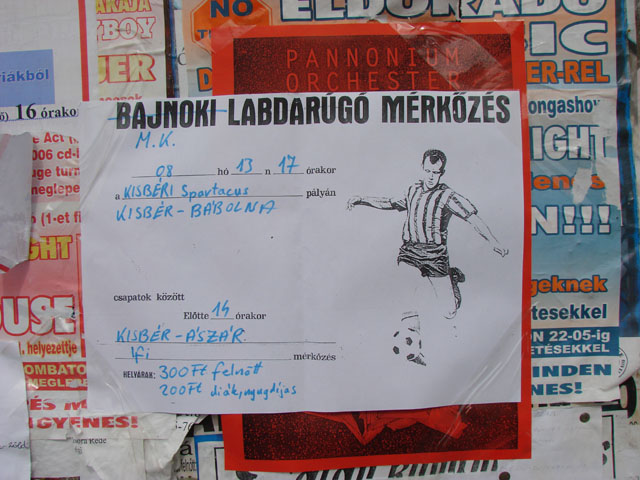 NO
ELDORADO
RAKAJA
YBOY
PANNONIUM
ORCHESTER
riákból
16 órako
BAJNOKI LABDARÚGÓ MÉRKŐZÉS
M.K.
08 hó 13 n 17 órakor
a KISBÉRI Spartacus pályán
KISBÉR-BÁBOLNA
csapatok között
Előtte 14 órakor
KISBÉR-ÁSZÁR
Ifi mérkőzés
HELYÁRAK: 300 Ft felnőtt
200 Ft diák, nyugdíjas
IC
ER-REL
ongashov
IGHT
N!!!
geknek
tesekkel
ON 22-05-ig
ETÉSEKKEL
MINDEN
ENES!
Act (
006 cd-l
uge turn
meglepe
(1-et fi
GHT
OUSE
. helyezettje
OMBATO
MEGLEPE
ÉS M
GYENES!